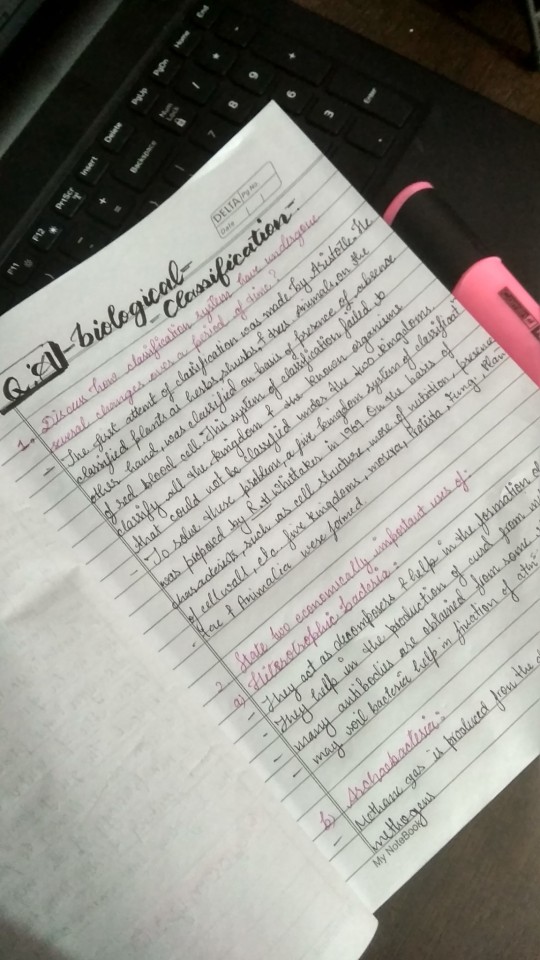 F11
F12
PrtScr
Insert
Delete
PgUp
PgDn
Home
End
Backspace
Num
Lock
Enter
7
8
9
6
3
/
*
-
+
=
DELTA Pg No.
Date
Q.A - biological -
- classification -
1. Discuss how classification system have undergone
several changes over a period of time?
- The first attempt of classification was made by Aristotle. He
classified plants as herbs, shurbs, & trees. Animals on the
other hand, was classified on basis of presence of absence
of red blood cell. This system of classification failed to
classify all the kingdom & the known organisms
that could not be classified under the two kingdoms.
- To solve these problem, a five kingdom system of classificat
was proposed by R.H Whittaker in 1969. On the basis of
characterists such as cell structure, mode of nutrition, presence
of cell wall, etc. five kingdoms, monera, Protista, Fungi, Plan
tae & Animalia were formed.
? State two economically important uses of:-
a) Heterotrophic bacteria:
- They act as decomposers & help in the formation of
- They help in the production of curd from
- many antibodies are obtained from some
- may soil bacteria help in fixation of
b) Archaebacteria:
- Methane gas is produced from the
methogens
My NoteBook